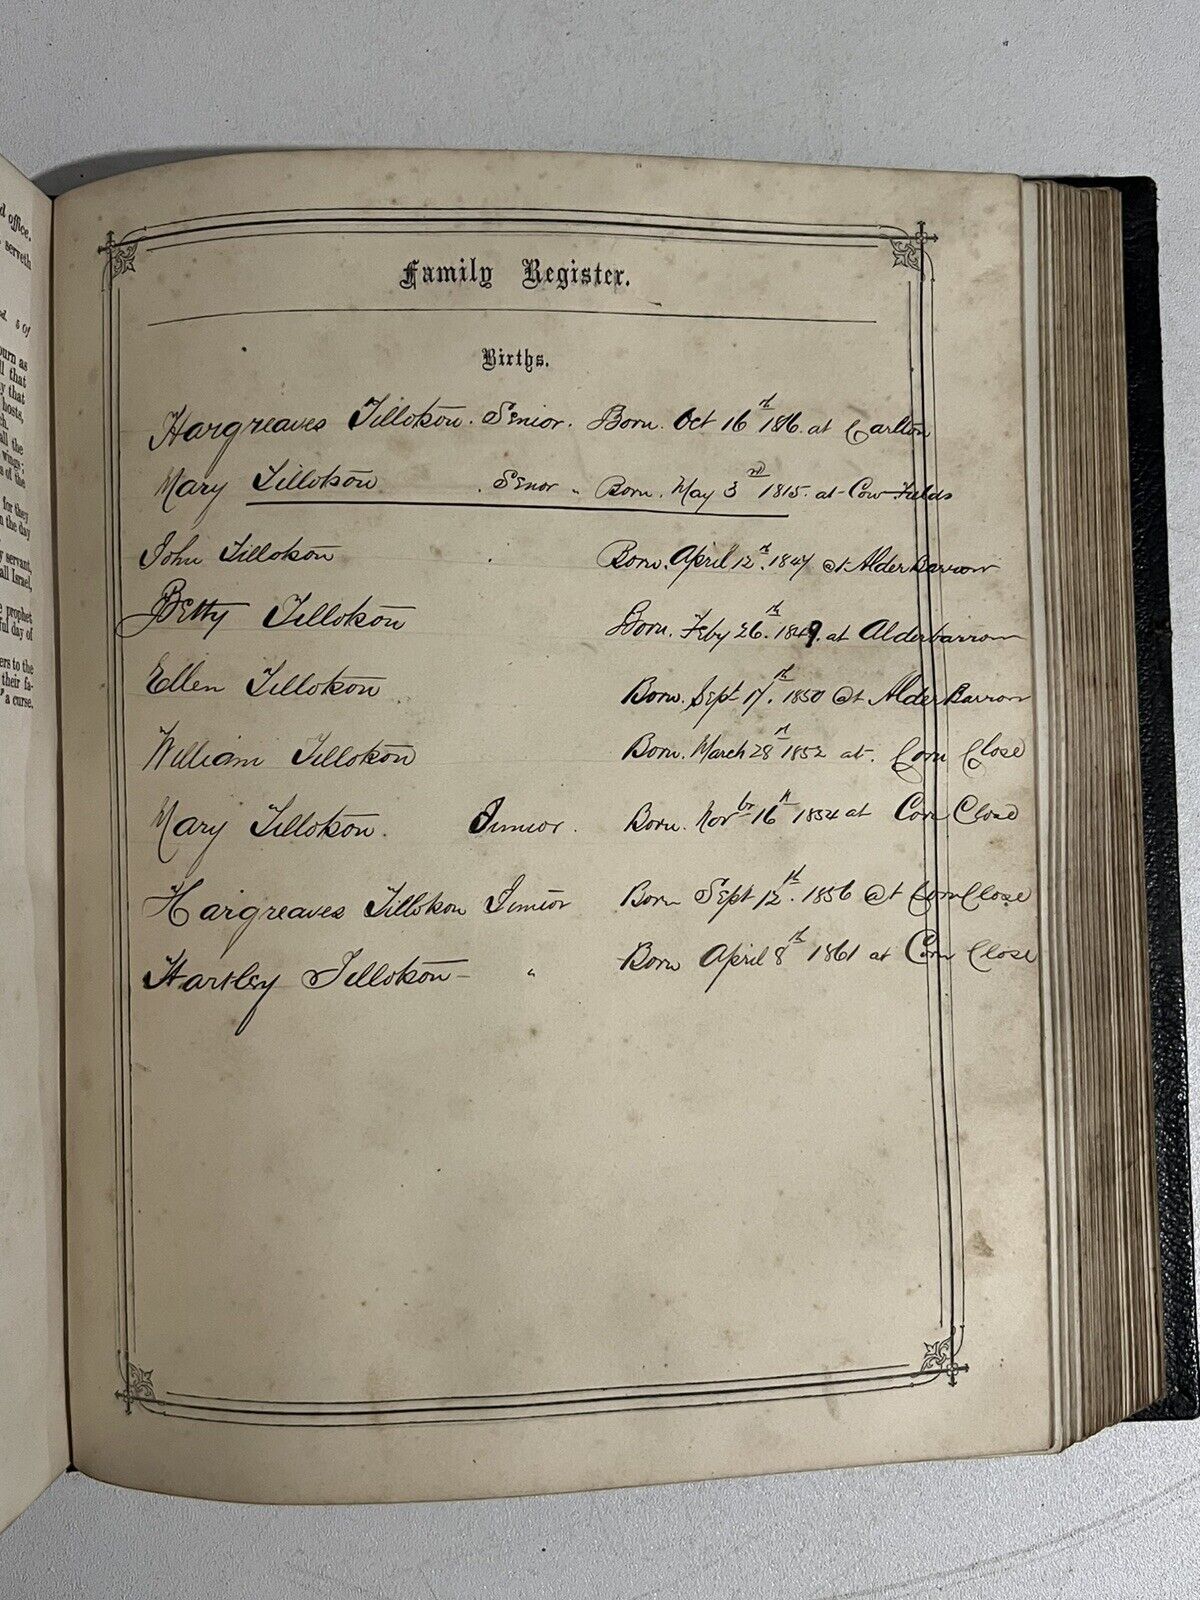 d office.
serveth
5 Of
ourn as
ll that
y that
hosts,
ch.
all the
wings;
s of the
for they
n the day
servant,
all Israel,
e prophet
ful day of
ers to the
their fa-
a curse.
Family Register.
Births.
Hargreaves Tillotson. Senior. Born. Oct 16th 1816. at Carlton
Mary Tillotson . Senor " Born. May 3rd 1815. at Cow Fields
John Tillotson Born. April 12th. 1847 at Alder Barrow
Betty Tillotson Born. Feby 26th. 1849. at Alderbarrow
Ellen Tillotson Born. Sept 17th. 1850 at Alder Barrow
William Tillotson Born. March 28th 1852 at. Corn Close
Mary Tillotson. Junior. Born. Novbr 16th 1854 at Corn Close
Hargreaves Tillotson Junior Born Sept 12th. 1856 at Corn Close
Hartley Tillotson " Born April 8th 1861 at Corn Close